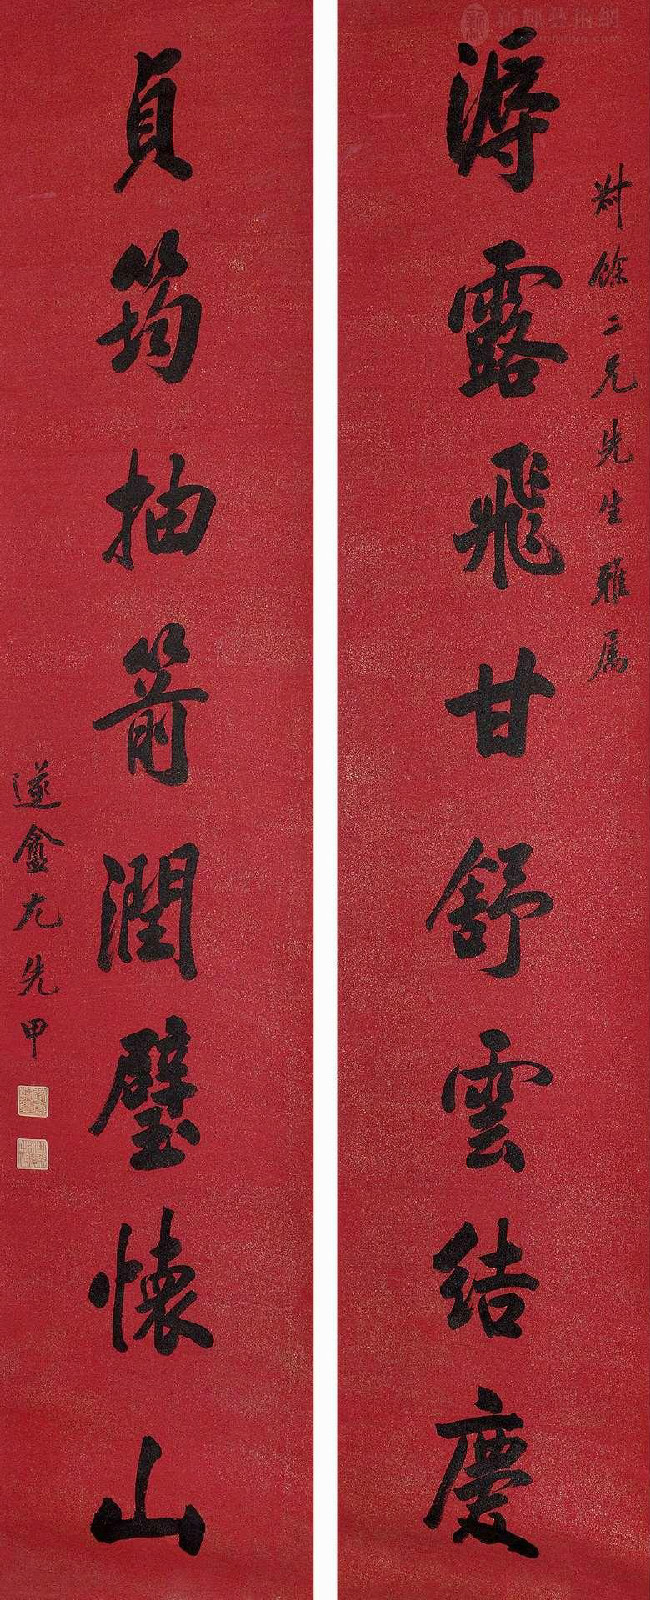 餘二兄先生雅属
漙露飛甘舒雲結慶
貞筠抽箭潤璧懷山
遂盦尤先甲